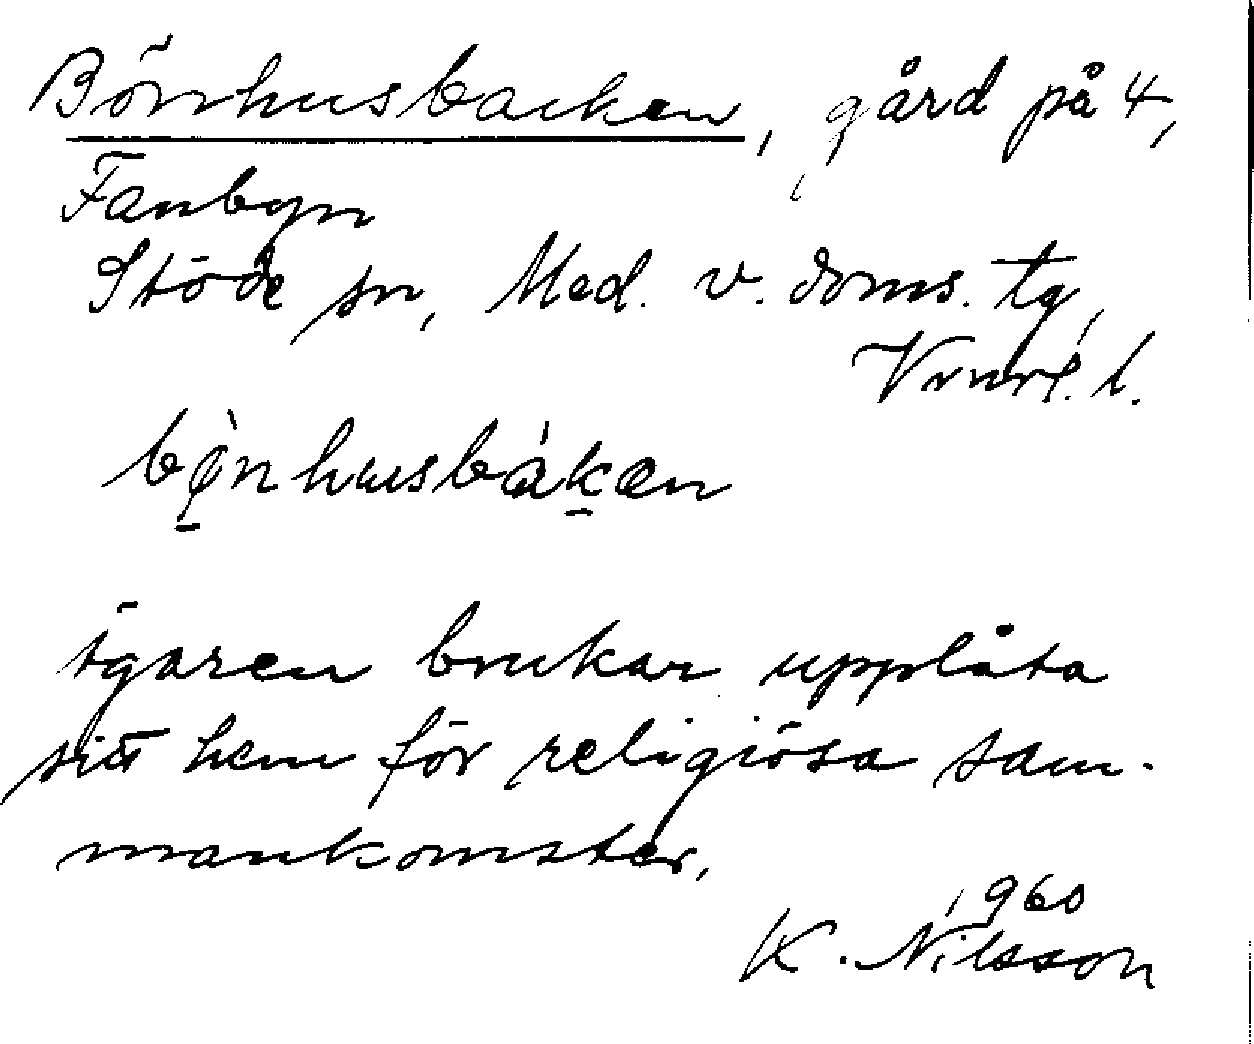 Bönhusbacken, gård på 4,
Fanbyn
Stöde sn, Med. v. doms. tg,
l.
bø̀nhusbákan
ägaren brukar upplåta
sitt hem för religiösa sam-
mankomster,
1960
K. Nilsson